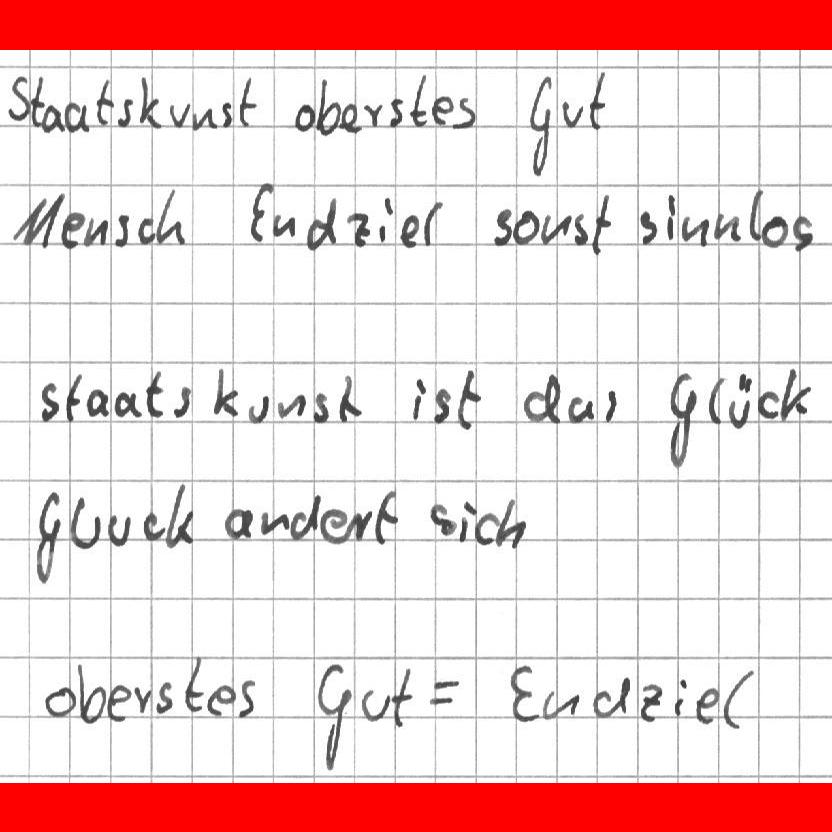 Staatskunst oberstes Gut
Mensch Endziel sonst sinnlos
staatskunst ist das Glück
Gluck andert sich
oberstes Gut = Endziel